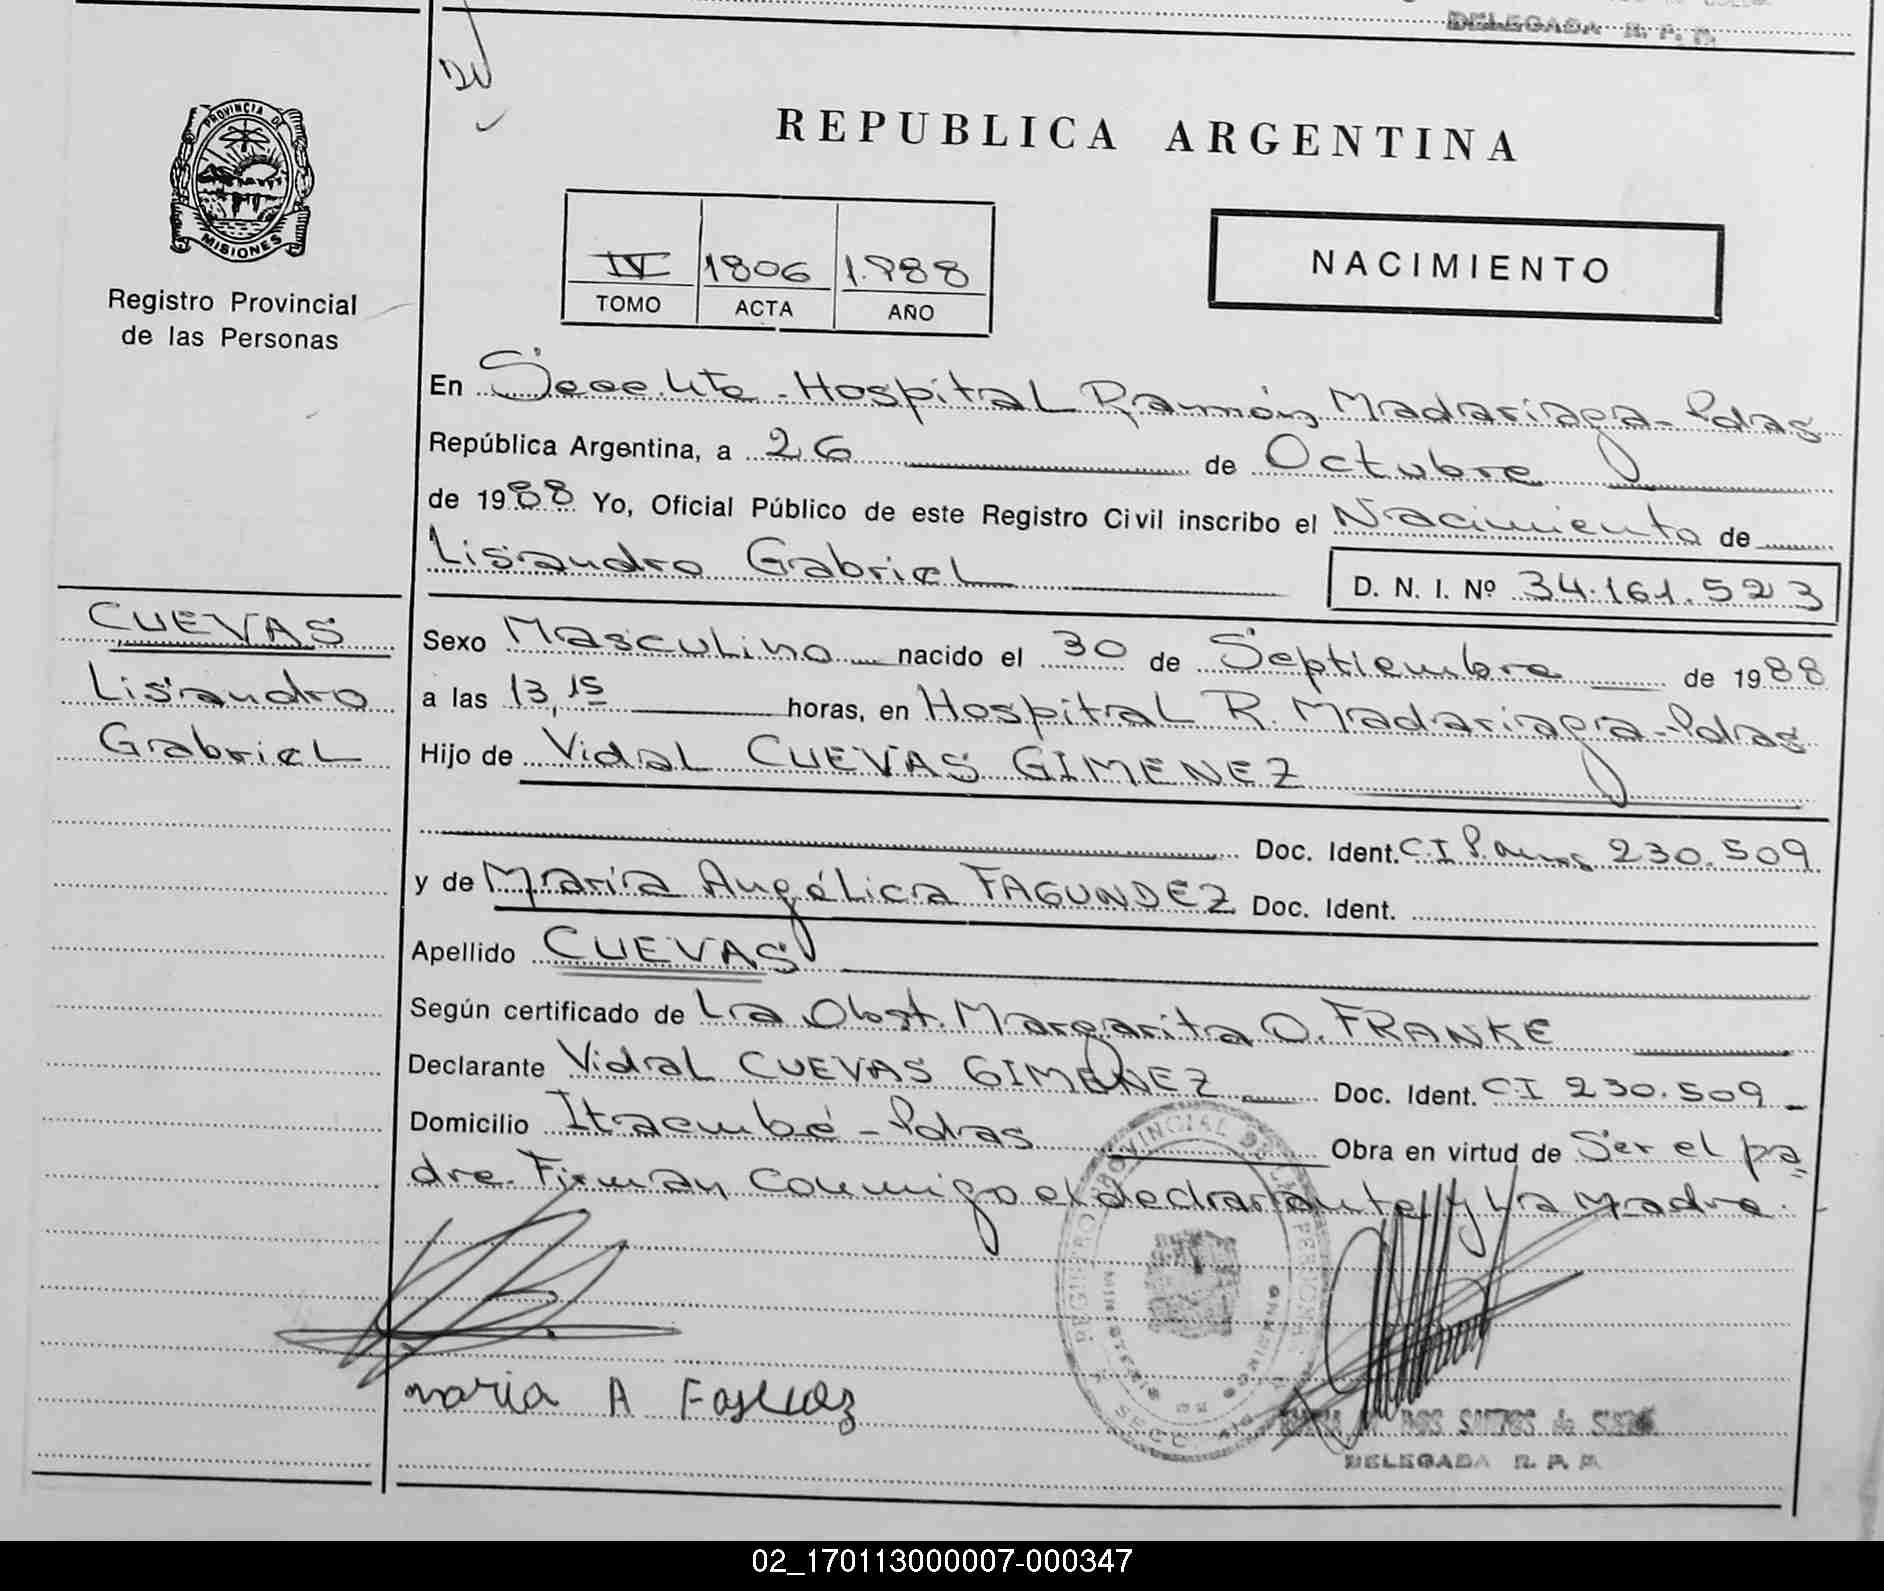 DELEGADA R. P. P.
PROVINCIA DE
MISIONES
Registro Provincial
de las Personas
REPUBLICA ARGENTINA
IV 1806 1.988
TOMO ACTA AÑO
NACIMIENTO
En Hospital Ramón Madariaga - Pdas
República Argentina, a 26 de Octubre
de 1988 Yo, Oficial Público de este Registro Civil inscribo el Nacimiento de
Lisandro Gabriel
D. N. I. Nº 34.161.523
CUEVAS
Lisandro
Gabriel
Sexo Masculino nacido el 30 de Septiembre de 1988
a las 13,15 horas, en Hospital R. Madariaga - Pdas
Hijo de Vidal CUEVAS GIMENEZ
Doc. Ident. CI 230.509
y de María Angélica FAGUNDEZ Doc. Ident.
Apellido CUEVAS
Según certificado de La Obst. Margarita O. FRANKE
Declarante Vidal CUEVAS GIMENEZ Doc. Ident. CI 230.509 -
Domicilio Itaembé - Pdas Obra en virtud de Ser el pa=
dre. Firman conmigo el declarante y La Madre.
REGISTRO PROVINCIAL DE LAS PERSONAS
MINISTERIO DE GOBIERNO
maria A
DOS SANTOS de
DELEGADA R. P. P.
02_170113000007-000347